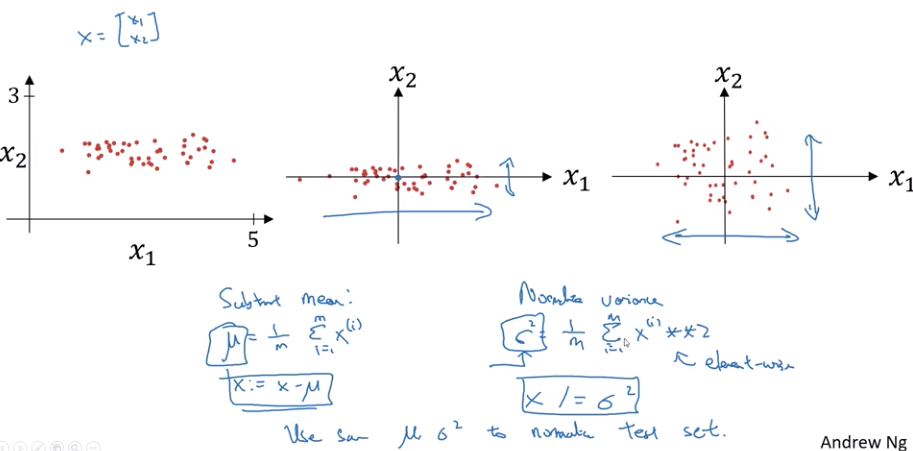 x = [x₁ x₂]
3
x₂
x₁
5
x₂
x₁
x₂
x₁
Subtract mean:
μ = 1/m Σ_{i=1}^{m} x^(i)
x := x - μ
Normalize variance
σ² = 1/m Σ_{i=1}^{m} x^(i) ** 2
↖ element-wise
x /= σ²
Use same μ σ² to normalize test set.
Andrew Ng